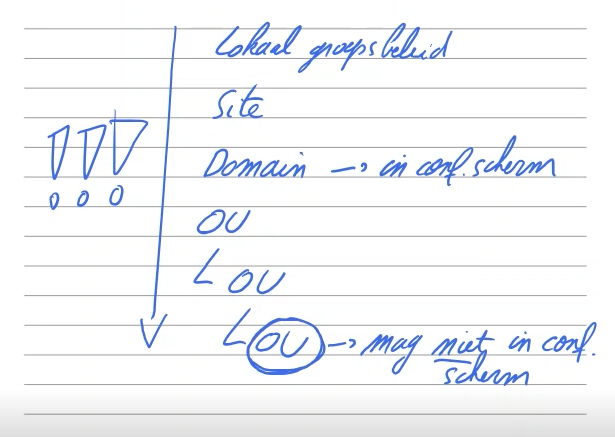 Lokaal groepsbeleid
Site
Domain → in conf. scherm
OU
OU
OU → mag niet in conf.
scherm